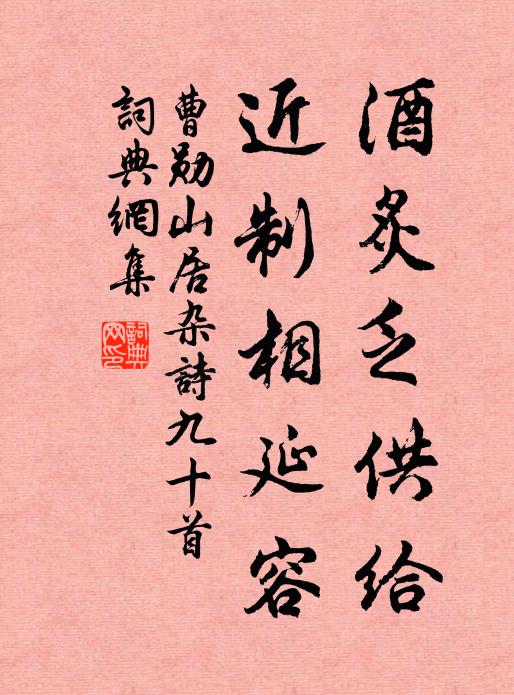 酒炙乏供給
近制相延容
曹勛山居杂詩九十首
詞典網集
詞典網印